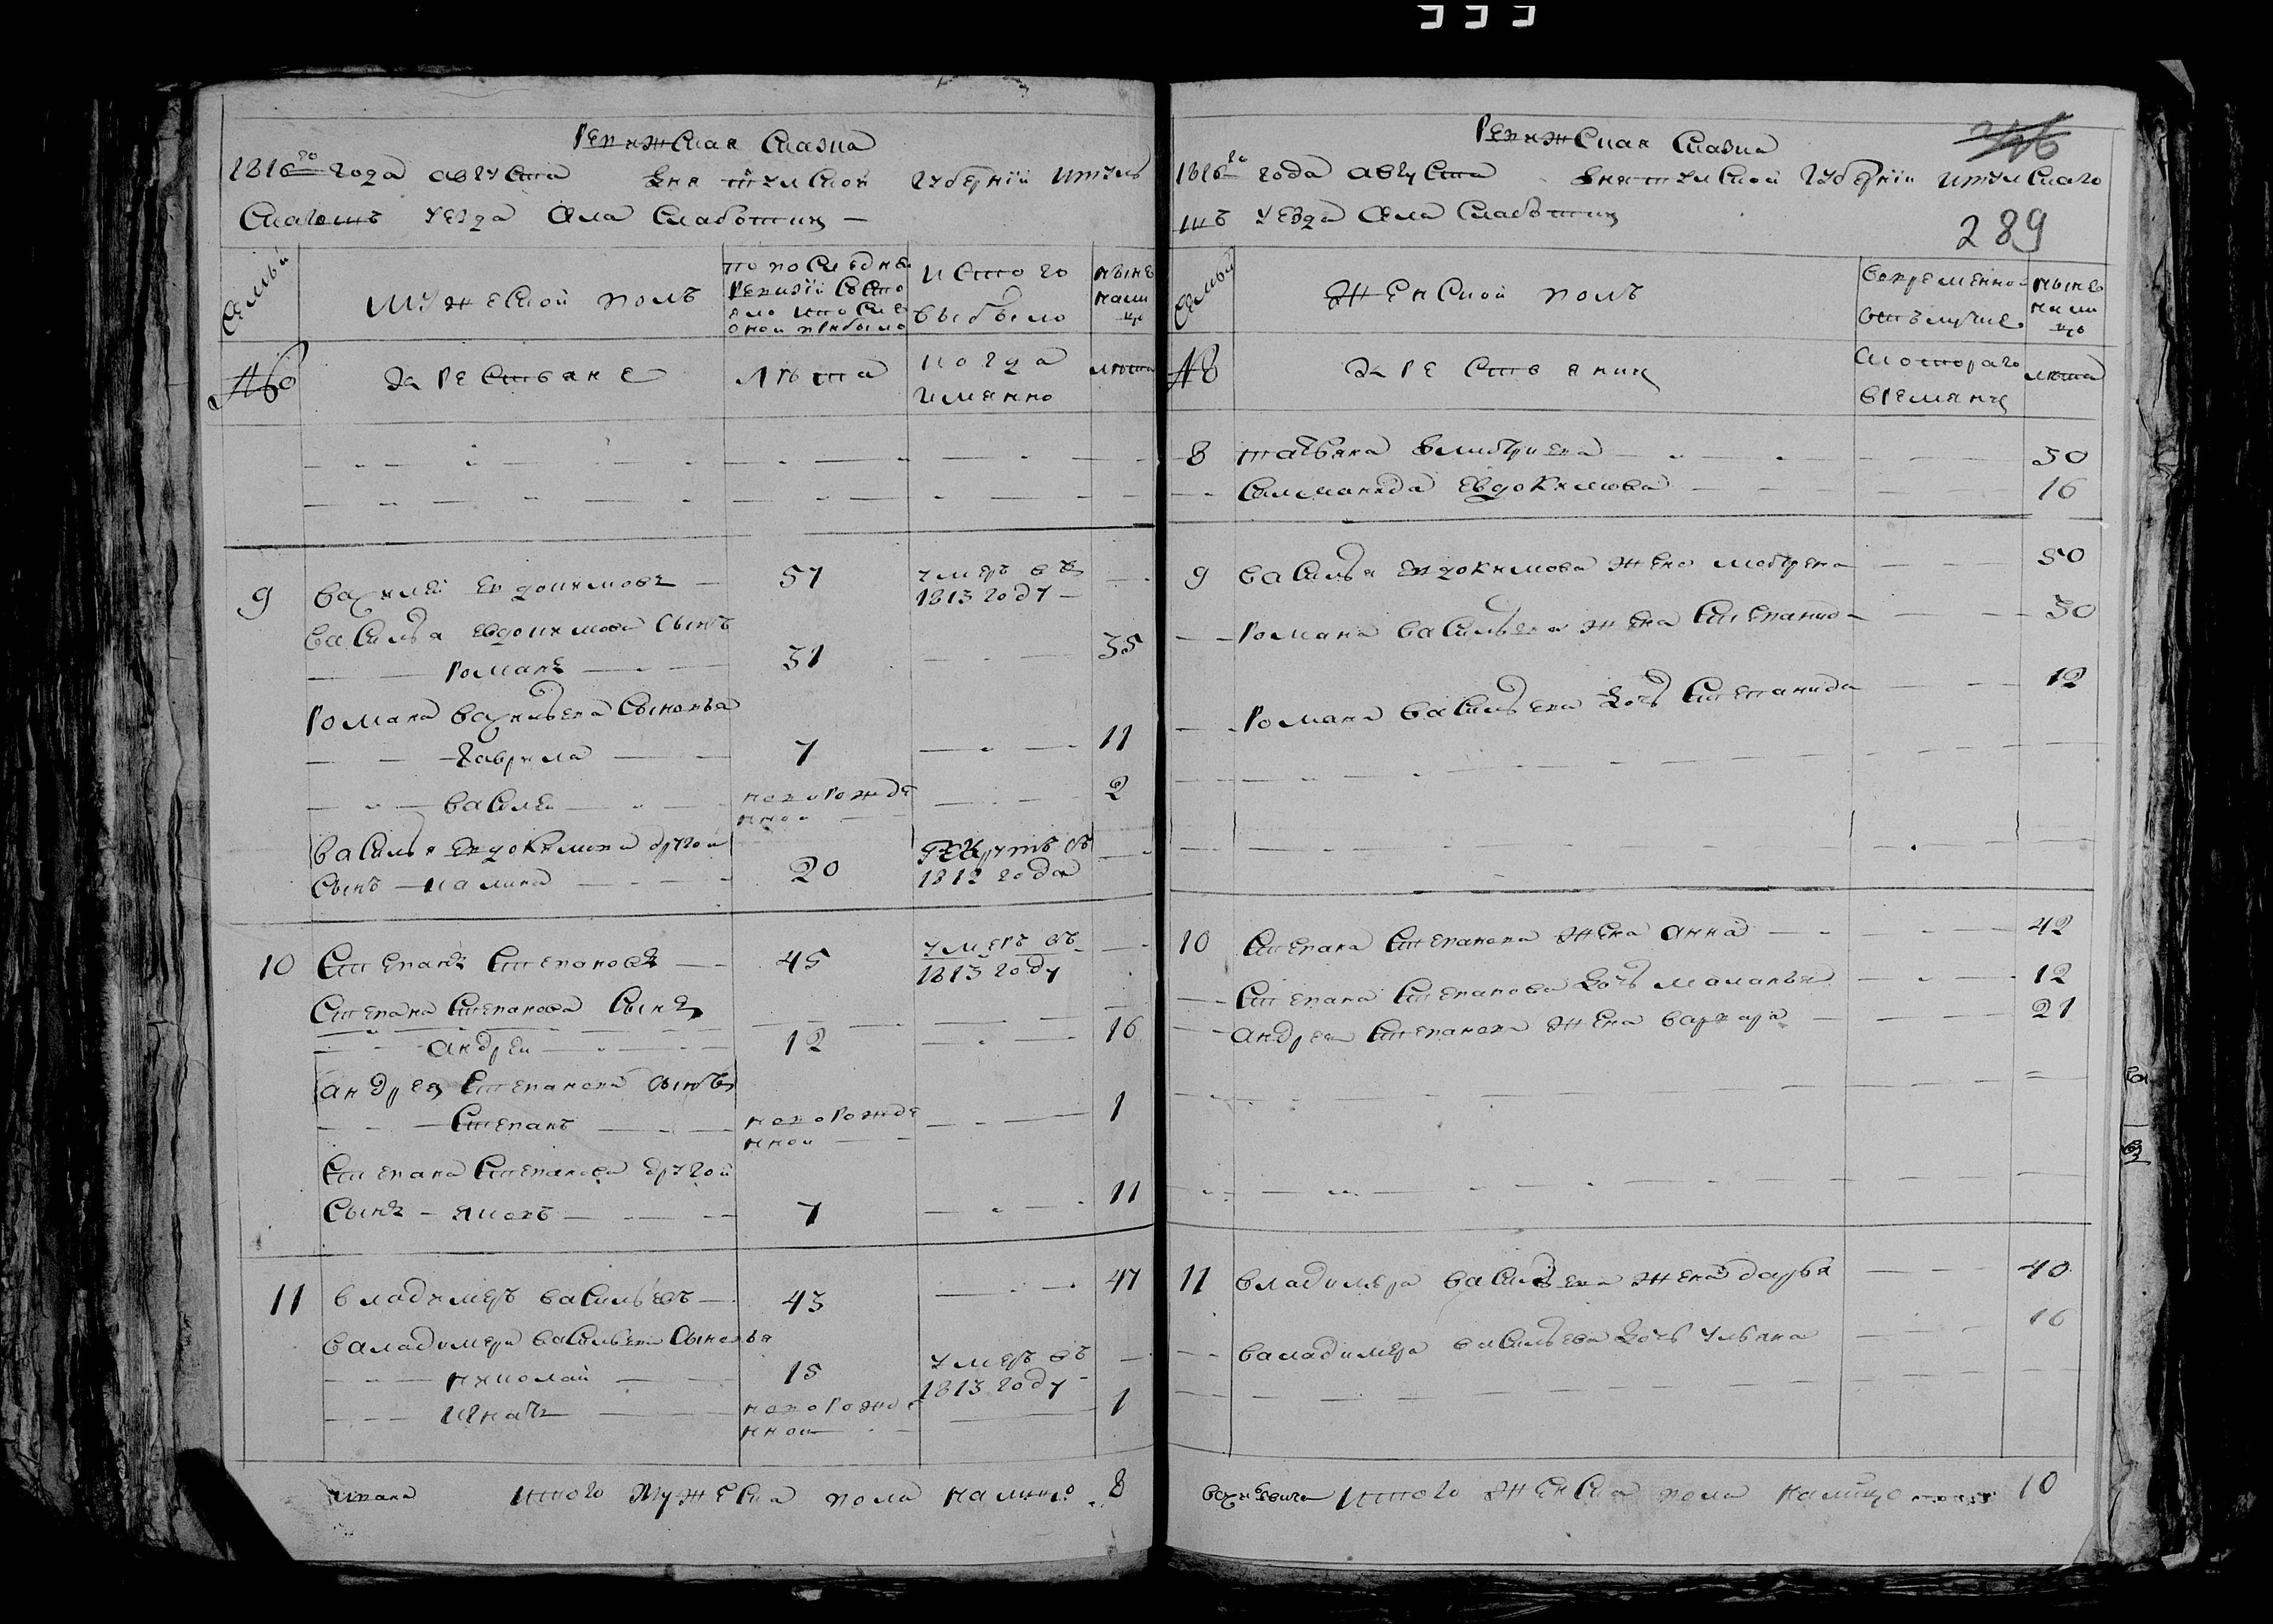 Ревижская Сказка
1816го года августа дня тульской губернии и туль
скагожъ уезда села Слаботки
Семьи
мужеской полъ
по последне
ревизии состо
яло и после
оной прибыло
и с того
выбыло
ныне
нали
цо
№
Крестьяне
лѣта
когда
имянно
лѣта
9
Василей Евдокимовъ
57
умеръ въ
1813 году
Василья Евдокимова сынъ
Романъ
31
35
Романа Васильева сыновья
Гаврила
7
11
Василей
новорожде
нной
2
Василья Евдокимова другой
сынъ Калина
20
рекрутъ съ
1812 года
10
Степанъ Степановъ
45
умеръ въ
1813 году
Степана Степанова сынъ
Андрей
12
16
Андрея Степанова сынъ
Степанъ
новорожде
нной
1
Степана Степанова другой
сынъ Яковъ
7
11
11
Владимеръ Васильевъ
43
47
Валадимера Васильева сыновья
Николай
15
умеръ въ
1813 году
Игнатъ
новорожде
нной
1
Итого мужеска пола налицо 8
Ревижская Сказка
1816го года августа дня тульской губернии и тульскаго
жъ уезда села Слаботки
289
Семьи
Женской полъ
во временной
отлучке
ныне
нали
цо
№
Крестьянки
с котораго
времяни
лѣта
8
Татьяна Дмитриева
50
Саломанида Евдокимова
16
9
Василья Евдокимова жена Мотрена
50
Романа Васильева жена Степанида
30
Романа Васильева дочь Степанида
12
10
Степана Степанова жена Анна
42
Степана Степанова дочь Маланья
12
Андрея Степанова жена Варвара
21
11
Владимера Васильева жена Дарья
40
Валадимера Васильева дочь Ульяна
16
Итого женска пола налицо 10